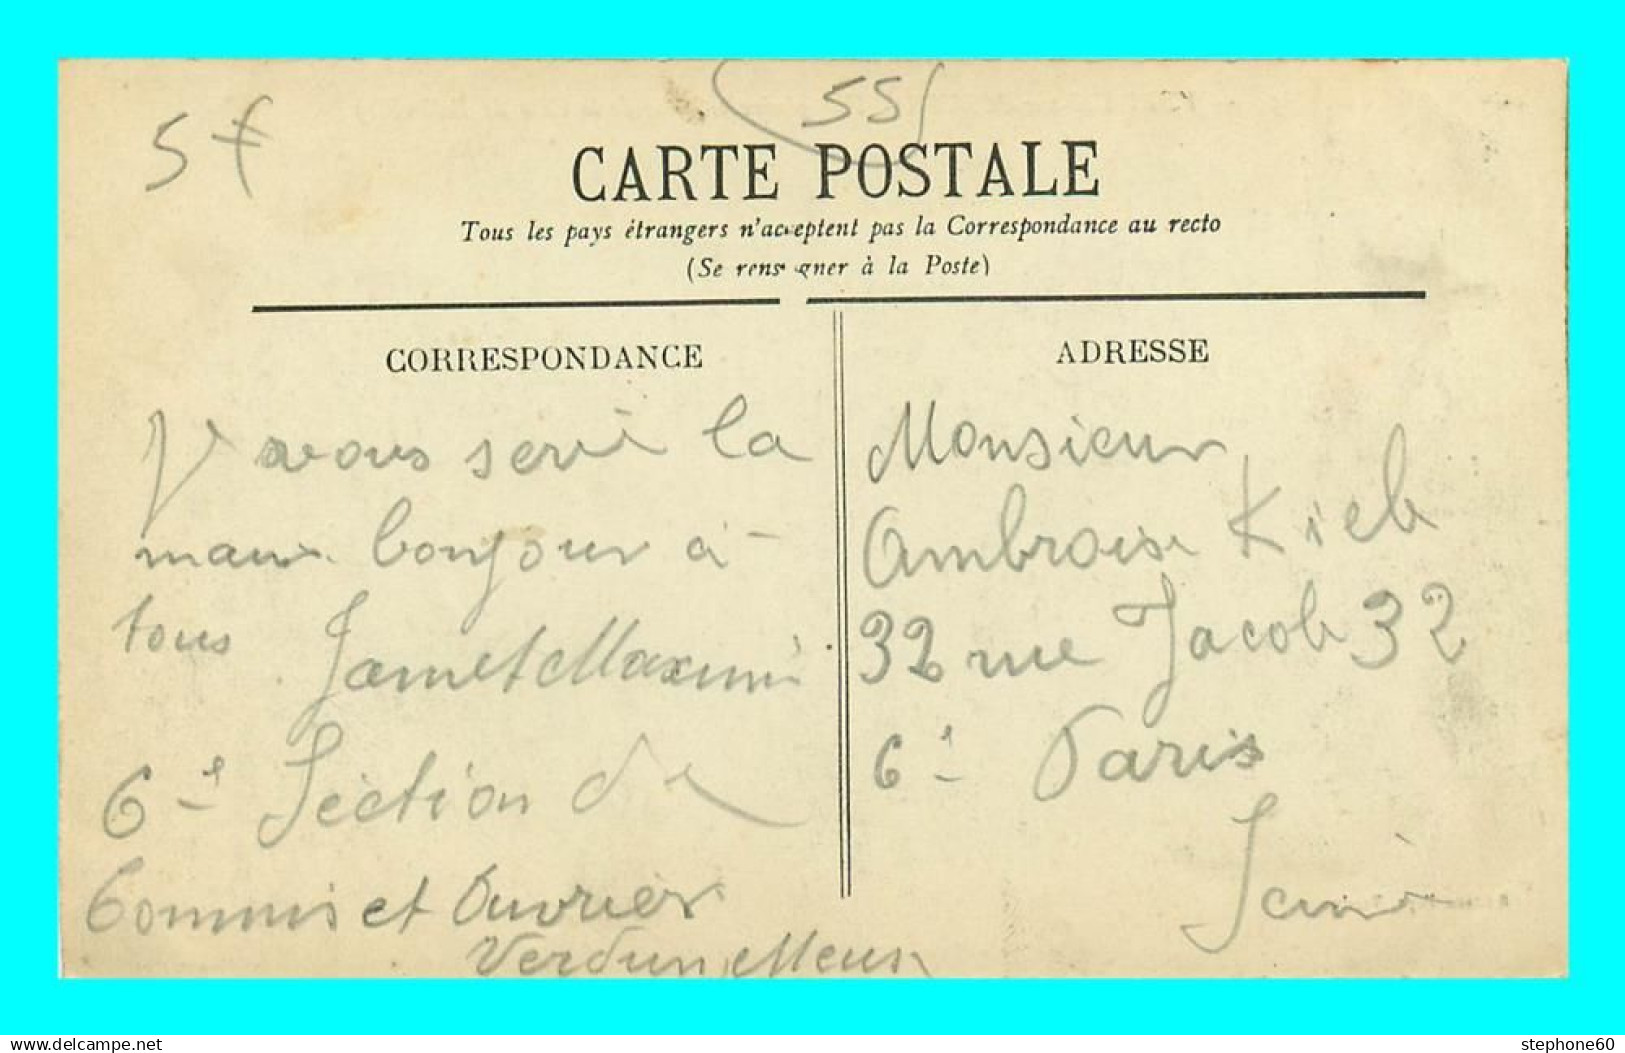 5f
55
CARTE POSTALE
Tous les pays étrangers n'acceptent pas la Correspondance au recto
(Se renseigner à la Poste)
CORRESPONDANCE
J vous serè la
main bonjour à
tous Jamet Maximi
6è Séction de
Commis et Ouvrier
Verdun Meuse
ADRESSE
Monsieur
Ambroise Kieb
32 rue Jacob 32
6è Paris
Seine
www.delcampe.net
stephone60